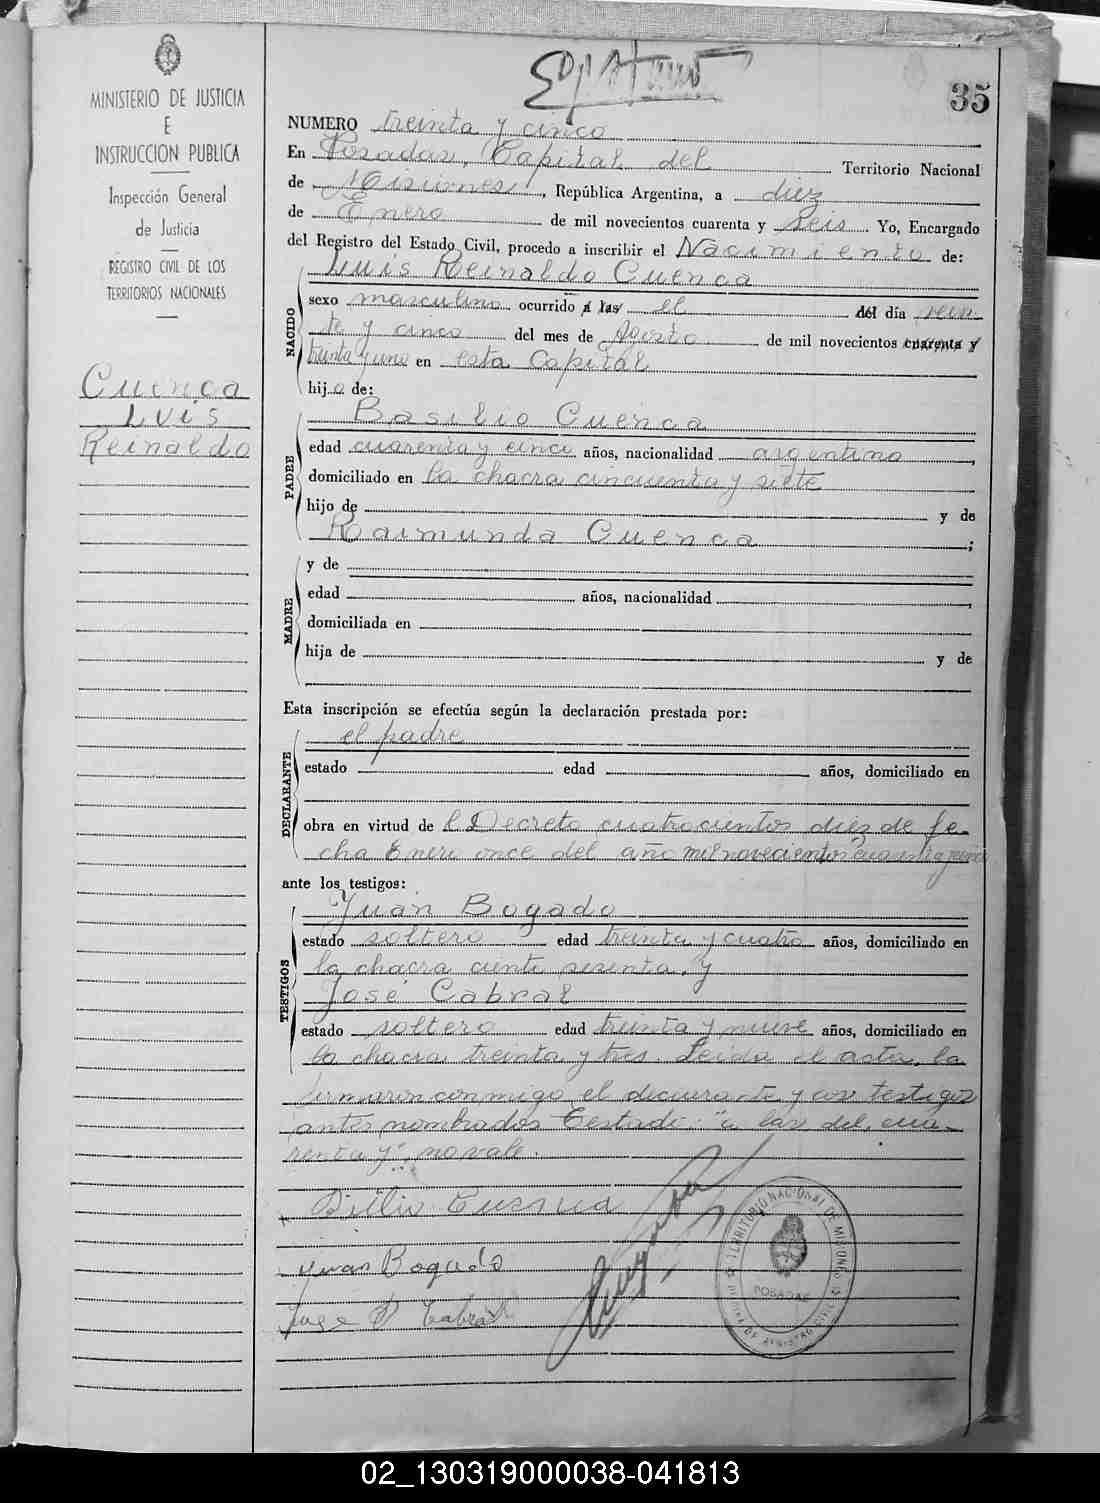 35
MINISTERIO DE JUSTICIA
E
INSTRUCCION PUBLICA
Inspección General
de Justicia
REGISTRO CIVIL DE LOS
TERRITORIOS NACIONALES
Cuenca
Luis
Reinaldo
NUMERO treinta y cinco
En Posadas, Capital del Territorio Nacional
de Misiones, República Argentina, a diez
de Enero de mil novecientos cuarenta y seis. Yo, Encargado
del Registro del Estado Civil, procedo a inscribir el Nacimiento de:
NACIDO
Luis Reinaldo Cuenca
sexo masculino ocurrido a las el del día vein
te y cinco del mes de Agosto de mil novecientos cuarenta y
treinta y uno en esta Capital
hijo de:
PADRE
Basilio Cuenca
edad cuarenta y cinco años, nacionalidad argentino,
domiciliado en la chacra cincuenta y siete
hijo de y de
Raimunda Cuenca;
MADRE
y de
edad años, nacionalidad,
domiciliada en
hija de y de
Esta inscripción se efectúa según la declaración prestada por:
DECLARANTE
el padre
estado edad años, domiciliado en
obra en virtud del Decreto cuatrocientos diez de fe-
cha Enero once del año mil novecientos
ante los testigos:
TESTIGOS
Juan Bogado
estado soltero edad treinta y cuatro años, domiciliado en
la chacra ciento sesenta, y
José Cabral
estado soltero edad treinta y nueve años, domiciliado en
la chacra treinta y tres. Leída el acta, la
firmaron conmigo el declarante y los testigos
antes nombrados Testado: "a las del, cua-
renta y", no vale.
Cuenca
Juan Bogado
Jose Cabral
TERRITORIO NACIONAL DE MISIONES
POSADAS
02_130319000038-041813